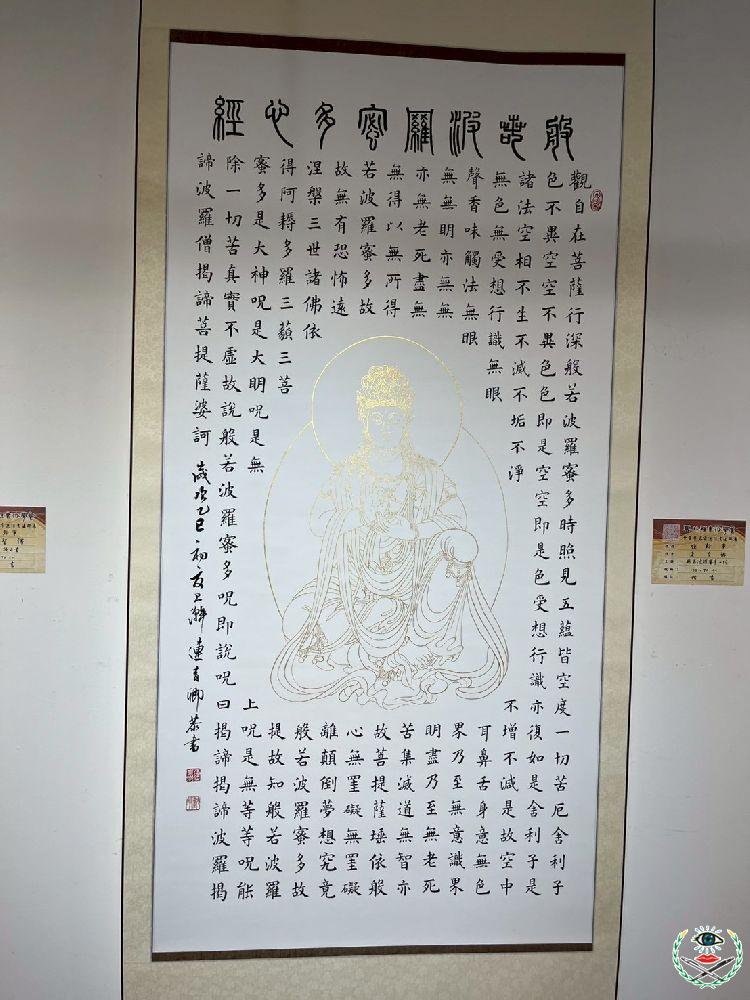 般若波羅蜜多心經
觀自在菩薩行深般若波羅蜜多時照見五蘊皆空度一切苦厄舍利子
色不異空空不異色色即是空空即是色受想行識亦復如是舍利子是
諸法空相不生不滅不垢不淨不增不減是故空中
無色無受想行識無眼耳鼻舌身意無色
聲香味觸法無眼界乃至無意識界
無無明亦無無明盡乃至無老死
亦無老死盡無苦集滅道無智亦
無得以無所得故菩提薩埵依般
若波羅蜜多故心無罣礙無罣礙
故無有恐怖遠離顛倒夢想究竟
涅槃三世諸佛依般若波羅蜜多故
得阿耨多羅三藐三菩提故知般若波羅
蜜多是大神呪是大明呪是無上呪是無等等呪能
除一切苦真實不虛故說般若波羅蜜多呪即說呪曰揭諦揭諦波羅揭
諦波羅僧揭諦菩提薩婆訶 歲次乙巳初夏上澣連育卿恭書